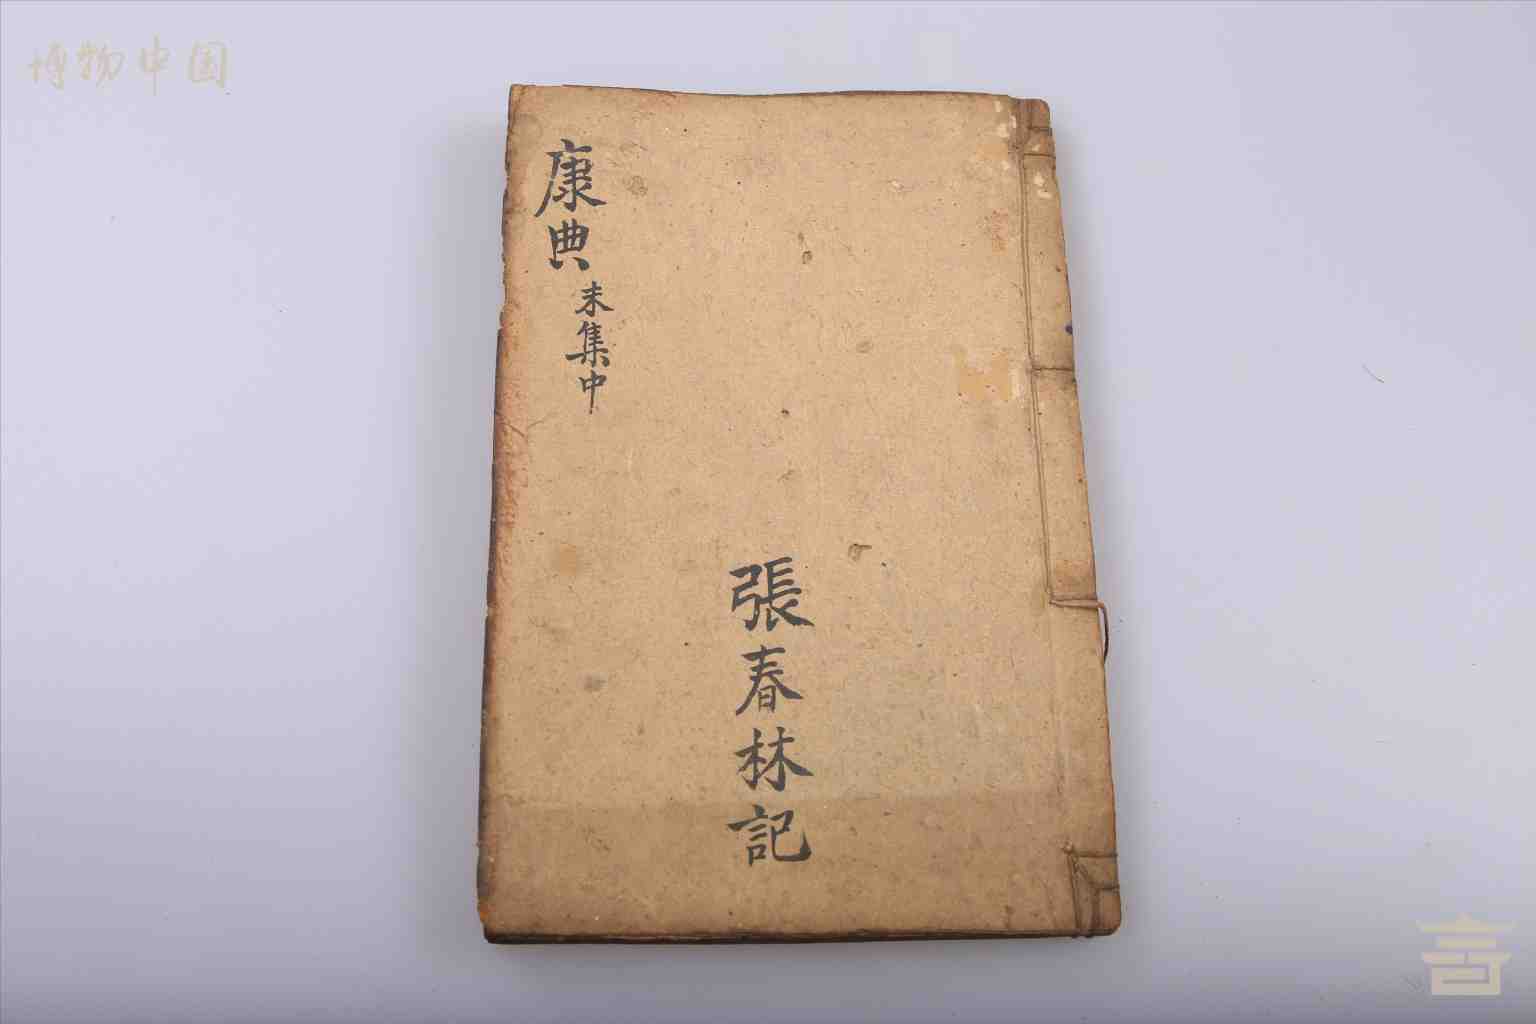 博物中国
康典
未集中
張春林記